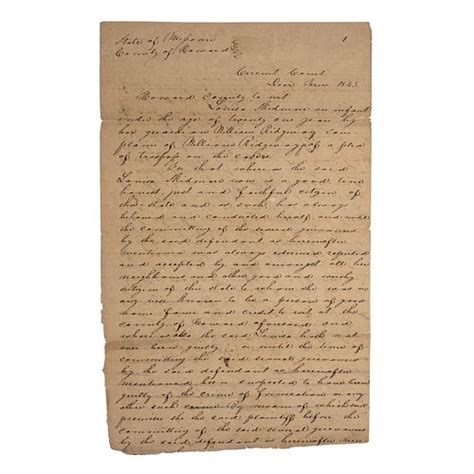 State of Missouri
County of Howard
1
Circuit Court
June Term 1843.
Howard County to wit
Louisa an infant
under the age of twenty one years by
her guardian William Ridgway com
plains of William Ridgway of a plea
of trespass on the case.
For that whereas the said
Louisa now is a good true
honest just and faithful citizen of
this state and as such has always
behaved and conducted herself and until
the committing of the several grievances
by the said defendant as hereinafter
mentioned was always esteemed reputed
and accepted by and amongst all her
neighbours and other good and worthy
citizens of this state to whom she was in
any wise known to be a person of good
name fame and credit to wit at the
county of Howard aforesaid and
whereas also the said Louisa hath not
ever been guilty or until the time of
committing the said several grievances
by the said defendant as hereinafter
mentioned been suspected to have been
guilty of the crime of fornication or any
other such crime By means of which said
premises she the said plaintiff before the
committing of the said several grievances
by the said defendant as hereinafter men